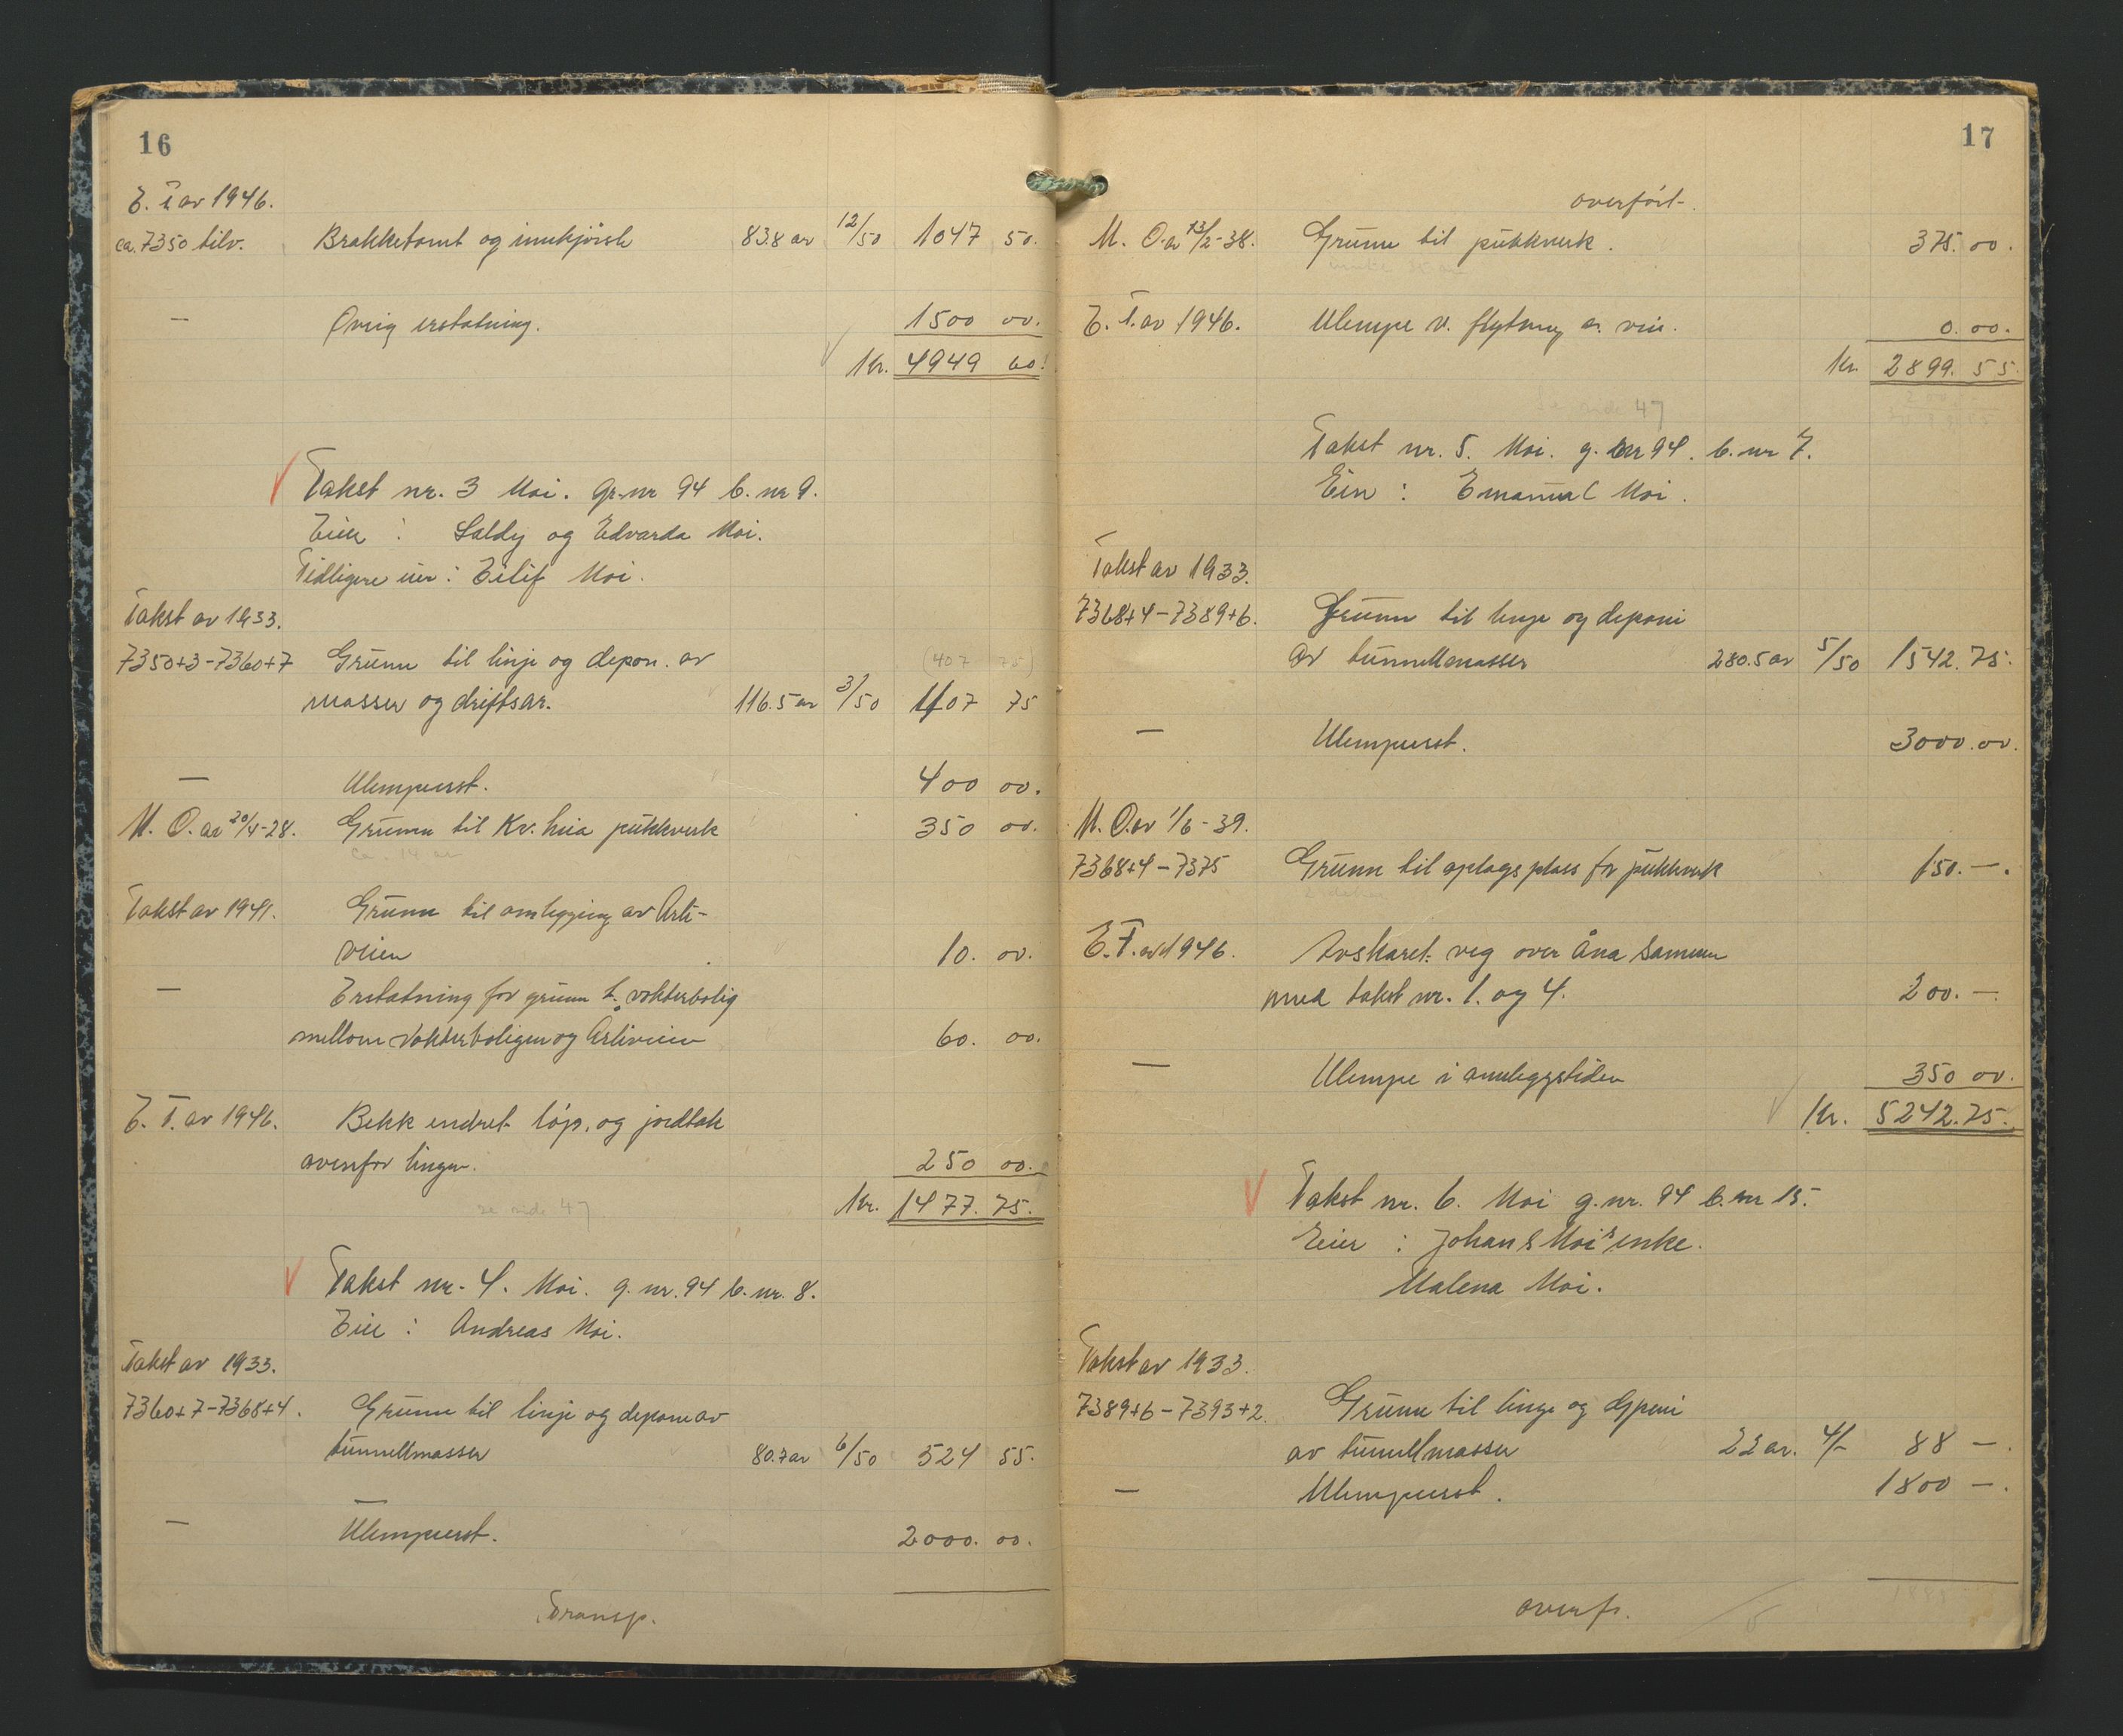 16
E. T. av 1946.
ca. 7350 tilv. Brakketomt og innkjørsle 83.8 ar 12/50 1047 50.
— Øvrig erstatning. 1500 00.
Kr. 4949 60.
Takst nr. 3 Moi. gr.nr 94 b.nr 9.
Eier : Saldy og Edvarda Moi.
Tidligere eier : Eilif Moi.
Takst av 1933.
7350+3-7360+7 Grunn til linje og depon. av (407 75)
masser og driftsar. 116.5 ar 3/50 407 75
— Ulempeerst. 400 00.
M. O. av 20/4-28. Grunn til Kv. heia pukkverk 350 00.
ca. 14 ar
Takst av 1941. Grunn til omlegging av Arli-
veien 10. 00.
— Erstatning for grunn t. vokterbolig
mellom vokterboligen og Arliveien 60. 00.
E. T. av 1946. Bekk endret løp, og jordtak
ovenfor lingen. 250 00.
Kr. 1477. 75.
se side 47
Takst nr. 4. Moi. g. nr. 94 b. nr. 8.
Eier : Andreas Moi.
Takst av 1933.
7360+7-7368+4. Grunn til linje og depone av
tunnellmasser 80.7 ar 6/50 524 55.
— Ulempeerst. 2000. 00.
Transp.
17
overført.
M. O. av 13/2-38. Grunn til pukkverk. 375. 00.
E. T. av 1946. Ulempe v. flytning a. vei. 0. 00.
Kr. 2899. 55.
se side 47
Takst nr. 5. Moi. g. nr 94. b. nr 7.
Eier : Emanuel Moi.
Takst av 1933.
7368+4-7389+6. Grunn til linje og deponi
av tunnellmasser 280.5 ar 5/50 1542. 75.
— Ulempeerst. 3000. 00.
M. O. av 1/6-39.
7368+4-7375 Grunn til oplagsplass for pukkverk 150. —.
E. T. av 1946. Avskaret veg over åna sammen
med takst nr. 1. og 4. 200. —.
— Ulempe i anleggstiden 350 00.
Kr. 5242. 75.
Takst nr. 6. Moi g. nr. 94 b. nr 15.
Eier : Johan S Moi's enke.
Malena Moi.
Takst av 1933.
7389+6-7393+2. Grunn til linje og deponi
av tunnellmasser 22 ar. 4/- 88 —.
— Ulempeerst. 1800 —.
overf.